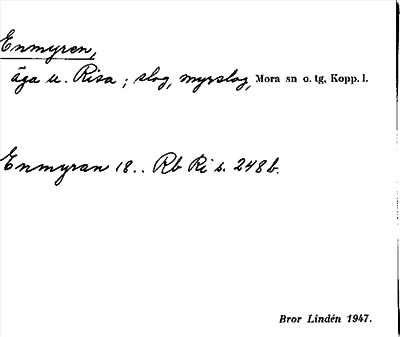 Enmyren,
äga u. Risa ; slog, myrslog, Mora sn o. tg, Kopp. l.
Enmyran 18.. Rb Ri s. 248 b.
Bror Lindén 1947.